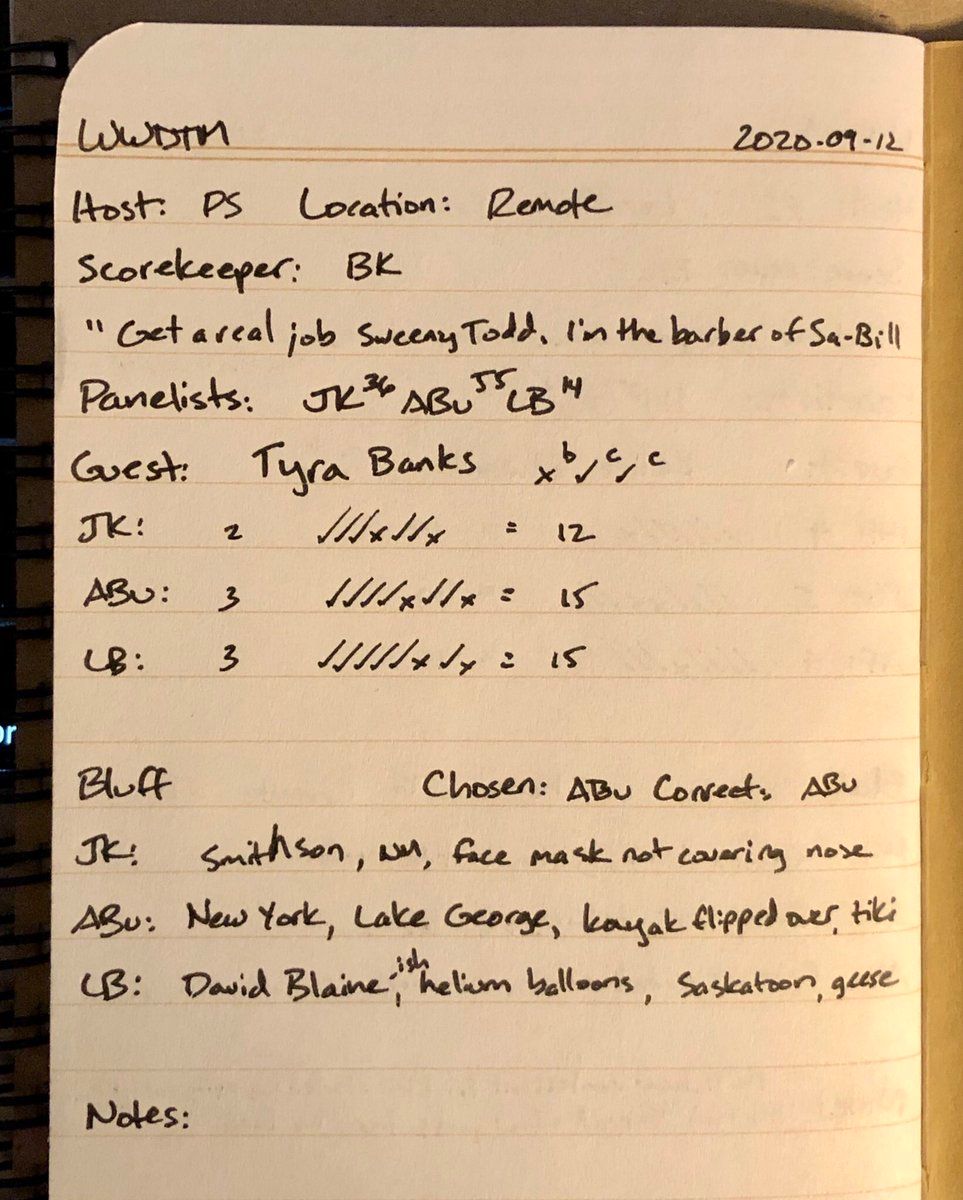 WWDTM 2020-09-12
Host: PS Location: Remote
Scorekeeper: BK
" Get a real job Sweeny Todd, I'm the barber of Sa-Bill
Panelists: JK36 ABu55 LB14
Guest: Tyra Banks xb ✓c ✓c
JK: 2 ✓✓✓x✓✓x = 12
ABu: 3 ✓✓✓✓x✓✓x = 15
LB: 3 ✓✓✓✓✓x✓x = 15
or
Bluff Chosen: ABu Correct: ABu
JK: Smithson, NM, face mask not covering nose
ABu: New York, Lake George, kayak flipped over, tiki
LB: David Blaine-ish, helium balloons, Saskatoon, geese
Notes: